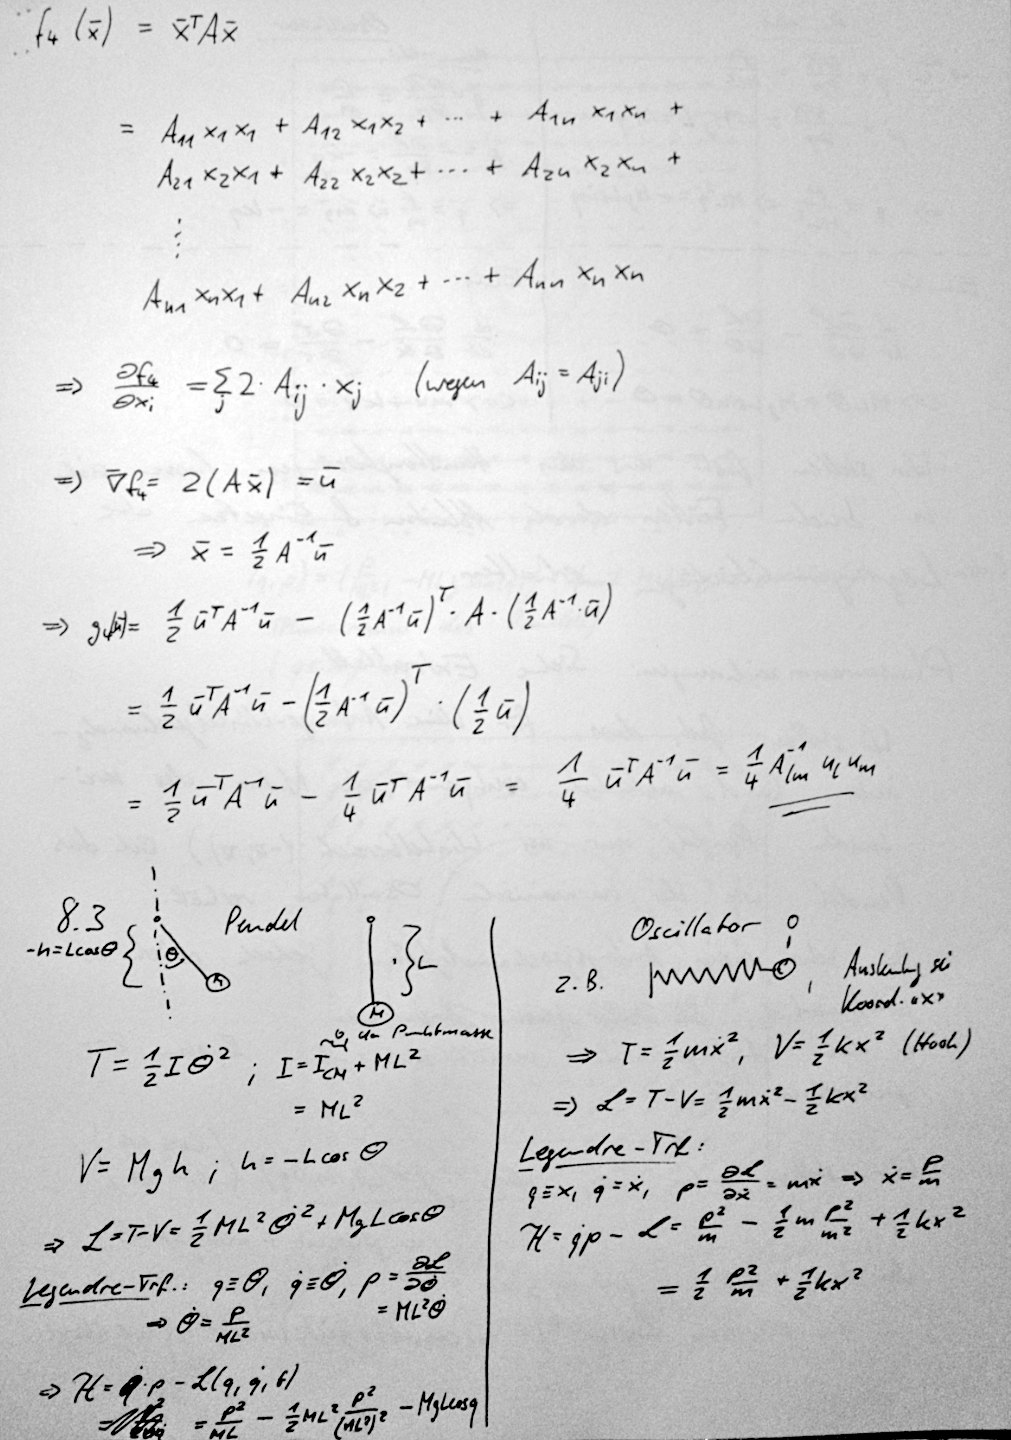 f₄(x̄) = x̄ᵀAx̄
= A₁₁x₁x₁ + A₁₂x₁x₂ + ⋯ + A₁ₙx₁xₙ +
A₂₁x₂x₁ + A₂₂x₂x₂ + ⋯ + A₂ₙx₂xₙ +
⋮
Aₙ₁xₙx₁ + Aₙ₂xₙx₂ + ⋯ + Aₙₙxₙxₙ
⇒ ∂f₄/∂xᵢ = Σⱼ 2·Aᵢⱼ·xⱼ (wegen Aᵢⱼ = Aⱼᵢ)
⇒ ∇̄f₄ = 2(Ax̄) = ū
⇒ x̄ = 1/2 A⁻¹ū
⇒ g₄(ū) = 1/2 ūᵀA⁻¹ū − (1/2 A⁻¹ū)ᵀ·A·(1/2 A⁻¹·ū)
= 1/2 ūᵀA⁻¹ū − (1/2 A⁻¹ū)ᵀ·(1/2 ū)
= 1/2 ūᵀA⁻¹ū − 1/4 ūᵀA⁻¹ū = 1/4 ūᵀA⁻¹ū = 1/4 A⁻¹ₗₘ uₗ uₘ
8.3 Pendel
-h=Lcosθ
θ
M
L
M
0, da Punktmasse
T = 1/2 I θ̇² ; I = I_CM + ML²
= ML²
V = Mgh ; h = −Lcosθ
⇒ ℒ = T−V = 1/2 ML²θ̇² + MgLcosθ
Legendre-Trf.: q≡θ, q̇≡θ̇, p = ∂ℒ/∂θ̇
= ML²θ̇
⇒ θ̇ = p/ML²
⇒ ℋ = q̇·p − ℒ(q, q̇, t)
= p²/ML − 1/2 ML² p²/(ML²)² − MgLcosq
Oscillator
z.B.
, Auslenkung sei
Koord. "x"
⇒ T = 1/2 mẋ², V = 1/2 kx² (Hook)
⇒ ℒ = T−V = 1/2 mẋ² − 1/2 kx²
Legendre-Trf.:
q≡x, q̇=ẋ, p = ∂ℒ/∂ẋ = mẋ ⇒ ẋ = p/m
ℋ = q̇p − ℒ = p²/m − 1/2 m p²/m² + 1/2 kx²
= 1/2 p²/m + 1/2 kx²